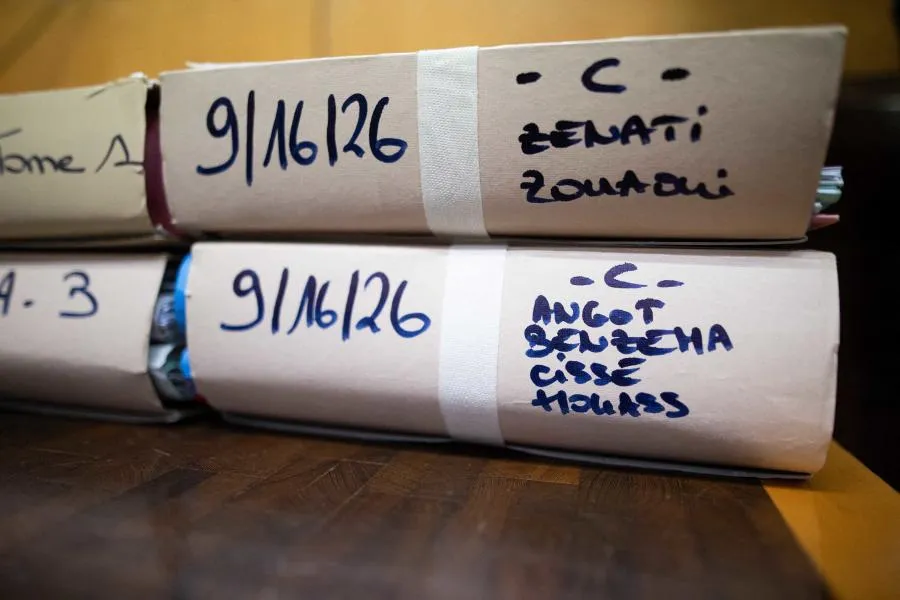 Tome 1
9/16/26
- C -
ZENATi
ZOUAOUi
A - 3
9/16/26
- C -
ANGOT
BENZEMA
CiSSÉ
HOUASS